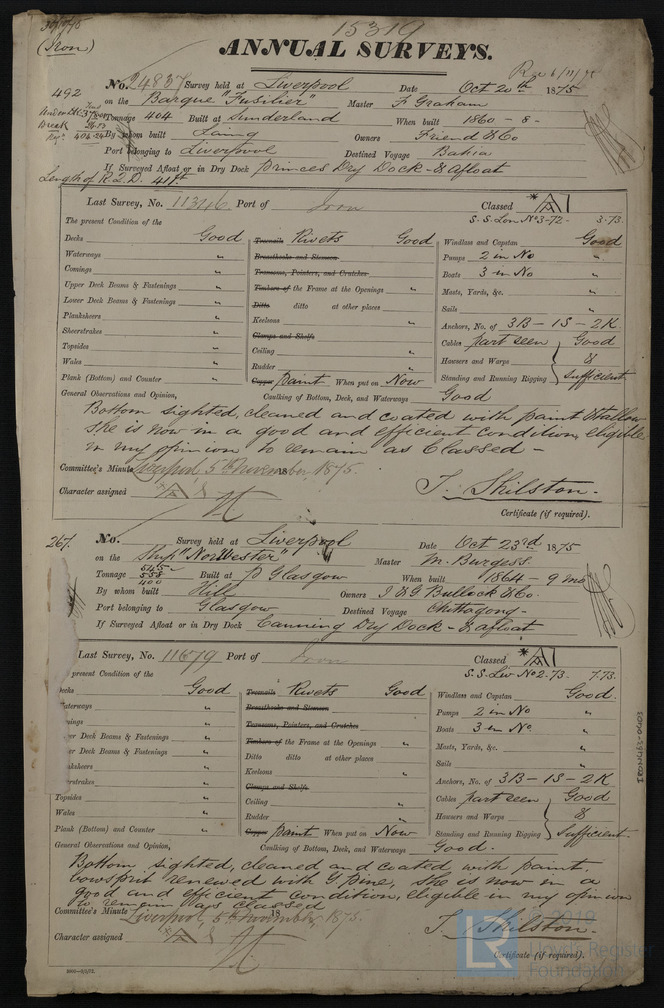 30/10/75
15319
(Iron)
ANNUAL SURVEYS.
Rec 6/11/75
No. 24837 Survey held at Liverpool Date Oct 20th 1875
492
on the Barque "Fusilier" Master F Graham
Tonnage 404 Built at Sunderland When built 1860 - 8 -
Break
By whom built Laing Owners Friend & Co
Port belonging to Liverpool Destined Voyage Bahia
If Surveyed Afloat or in Dry Dock Princes Dry Dock - & afloat
Length of R.Q.D. 41ft
Last Survey, No. 11346 Port of Iron Classed *A1
S.S. Lon No 3-72- 3.73
The present Condition of the
Decks Good
Waterways "
Comings "
Upper Deck Beams & Fastenings "
Lower Deck Beams & Fastenings "
Planksheers "
Sheerstrakes "
Topsides "
Wales "
Plank (Bottom) and Counter "
Treenails Rivets Good
Breasthooks and Stemson
Transoms, Pointers, and Crutches
Timbers of the Frame at the Openings "
Ditto ditto at other places "
Keelsons "
Clamps and Shelfs
Ceiling "
Rudder "
Copper paint When put on Now
Caulking of Bottom, Deck, and Waterways Good
Windlass and Capstan Good
Pumps 2 in No "
Boats 3 in No "
Masts, Yards, &c. "
Sails "
Anchors, No. of 3B - 1S - 2K
Cables part seen Good
Hawsers and Warps &
Standing and Running Rigging Sufficient
General Observations and Opinion,
Bottom sighted, cleaned and coated with paint & tallow
She is now in a good and efficient condition, eligible
in my opinion to remain as Classed -
Committee's Minute Liverpool 5th November 1875.
Character assigned *A1
T. Skilston.
Certificate (if required).
267.
No. Survey held at Liverpool Date Oct 23rd 1875
on the Ship "Nor Wester" Master M. Burgess
Tonnage 558 Built at P Glasgow When built 1864 - 9 mo
By whom built Hill Owners J & G Bullock & Co.
Port belonging to Glasgow Destined Voyage Chittagong -
If Surveyed Afloat or in Dry Dock Canning Dry Dock - & afloat
Last Survey, No. 11679 Port of Iron Classed *A1
S.S. Liv No 2-73. 7.73.
present Condition of the
Decks Good
Waterways "
mings "
er Deck Beams & Fastenings "
er Deck Beams & Fastenings "
nksheers "
erstrakes "
Topsides "
Wales "
Plank (Bottom) and Counter "
Treenails Rivets Good
Breasthooks and Stemson
Transoms, Pointers, and Crutches
Timbers of the Frame at the Openings "
Ditto ditto at other places "
Keelsons "
Clamps and Shelfs
Ceiling "
Rudder "
Copper paint When put on Now
Caulking of Bottom, Deck, and Waterways Good.
Windlass and Capstan Good.
Pumps 2 in No "
Boats 3 in No "
Masts, Yards, &c. "
Sails "
Anchors, No. of 3B - 1S - 2K
Cables part seen Good
Hawsers and Warps &
Standing and Running Rigging Sufficient
General Observations and Opinion,
Bottom sighted, cleaned and coated with paint.
bowsprit renewed with Y pine, she is now in a
good and efficient condition, eligible in my opinion
to remain as classed
Committee's Minute Liverpool, 5th November 1875.
Character assigned *A1
T. Skilston.
Certificate (if required).
IRON443-0403
LR
© 2019
Lloyd's Register
Foundation